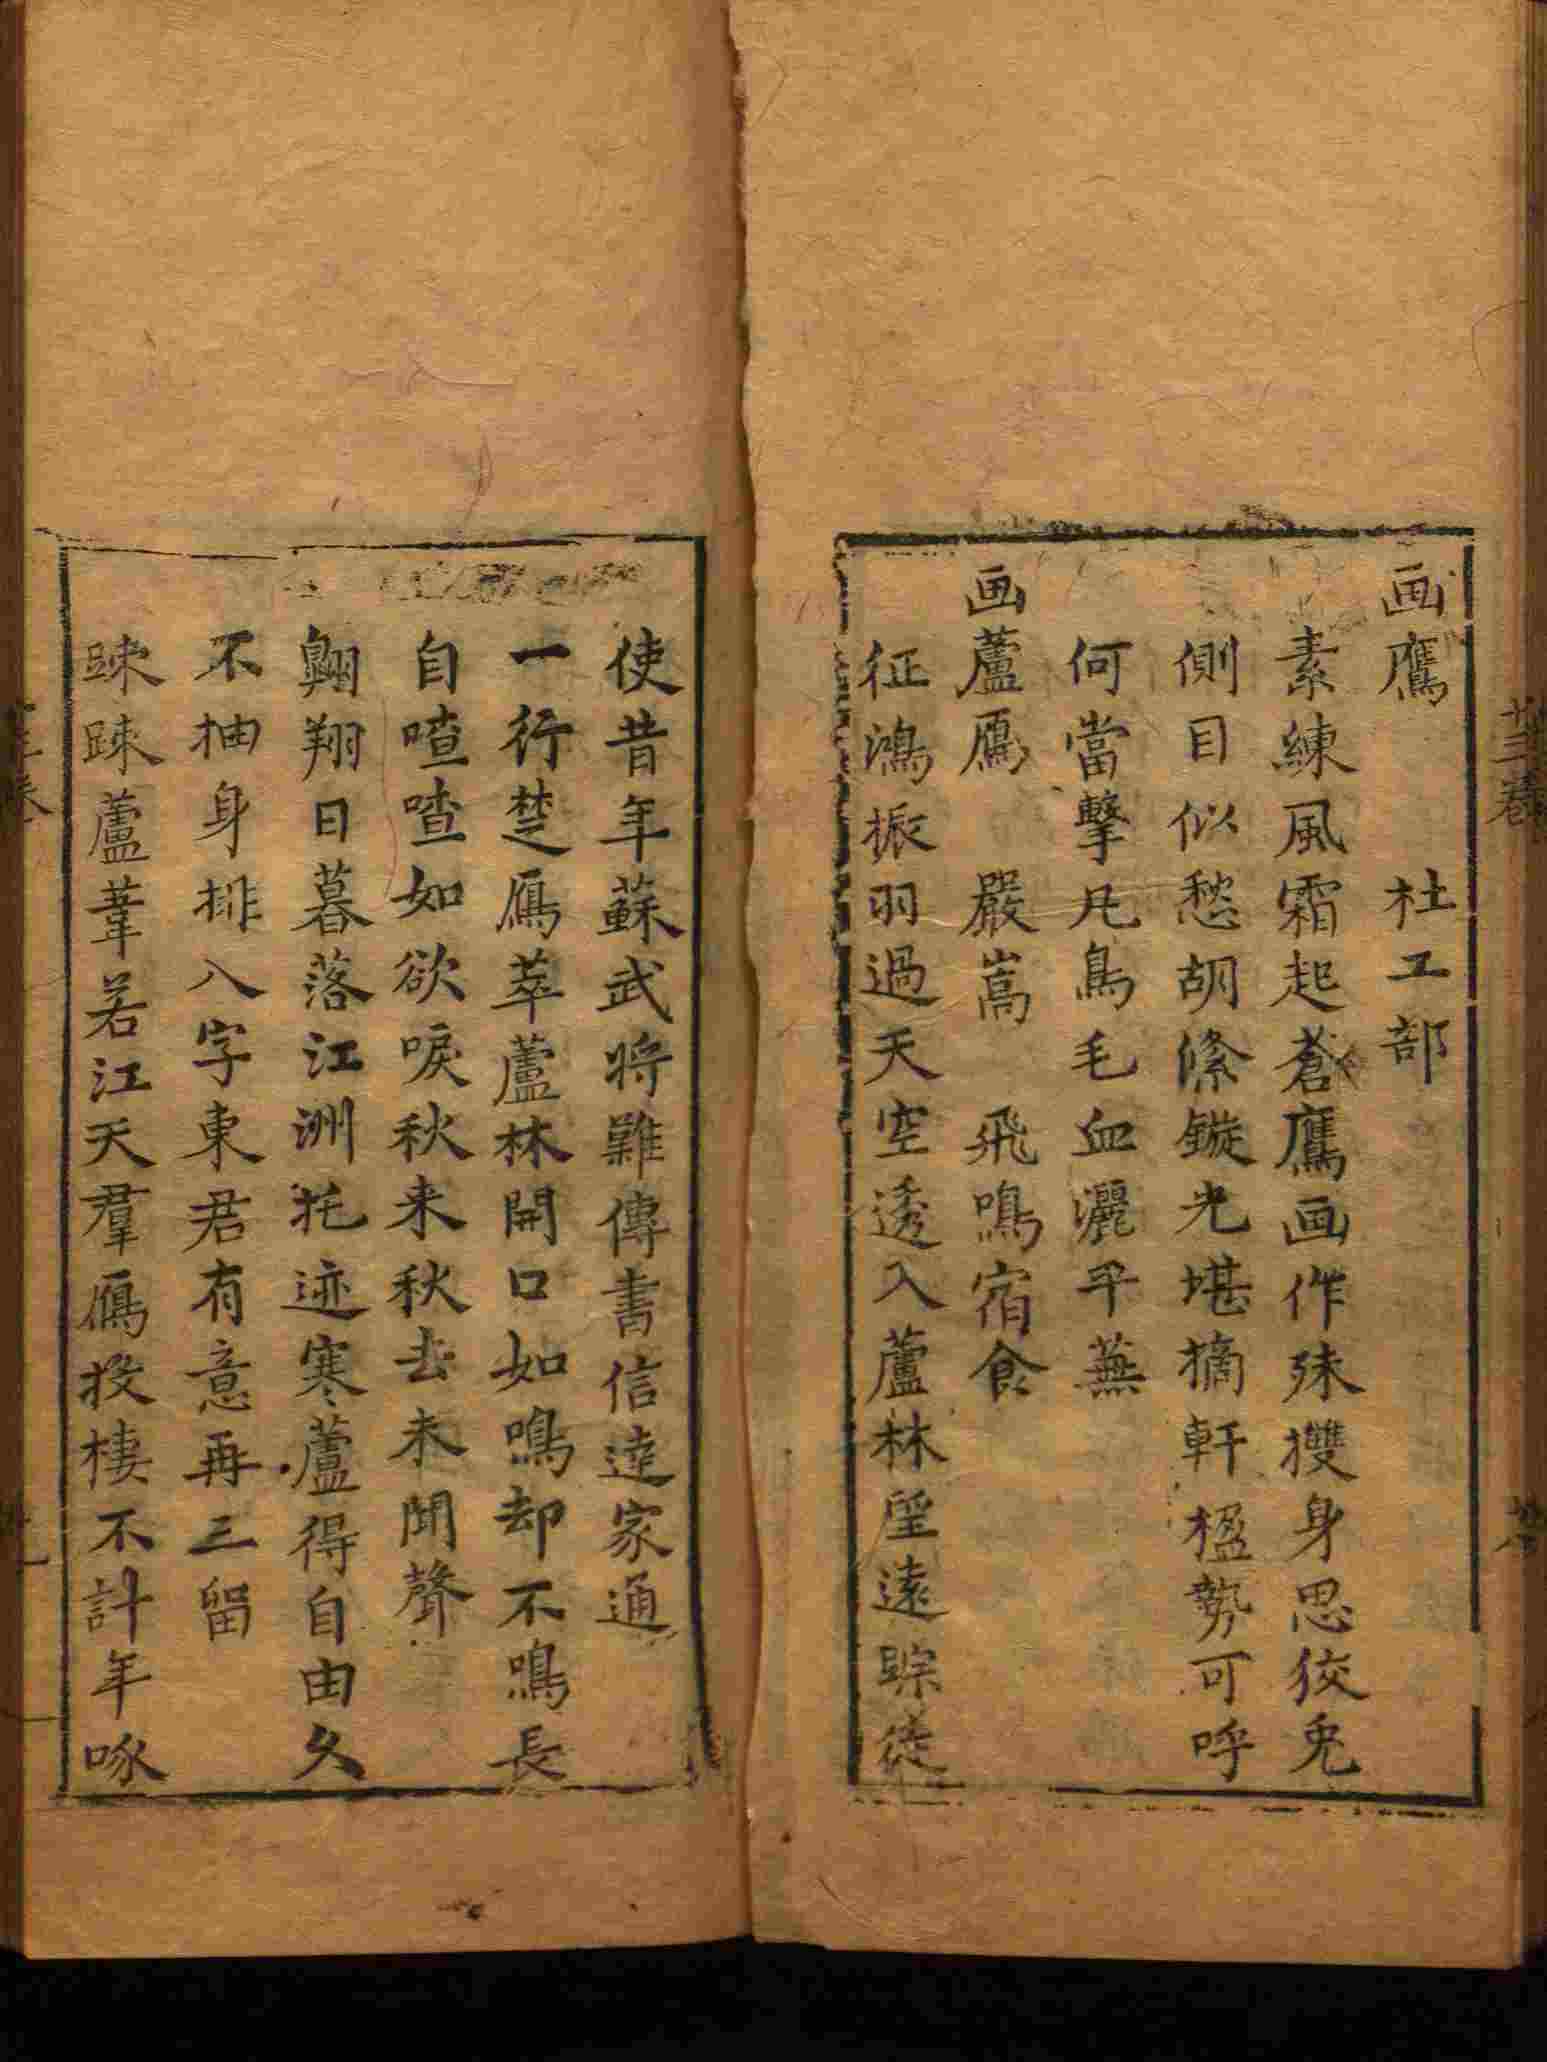 画鷹　杜工部
素練風霜起蒼鷹画作殊㩳身思狡兎
側目似愁胡絛鏇光堪摘軒楹勢可呼
何當擊凡鳥毛血灑平蕪
画蘆鴈　嚴嵩　飛鳴宿食
征鴻振羽過天空透入蘆林望遠踪徒
使昔年蘇武將難傳書信逹家通
一行楚鴈萃蘆林開口如鳴却不鳴長
自喳喳如欲唳秋来秋去未聞聲
翺翔日暮落江洲托迹寒蘆得自由久
不抽身排八字東君有意再三留
踈踈蘆葦若江天羣鴈投棲不計年啄
廿三卷